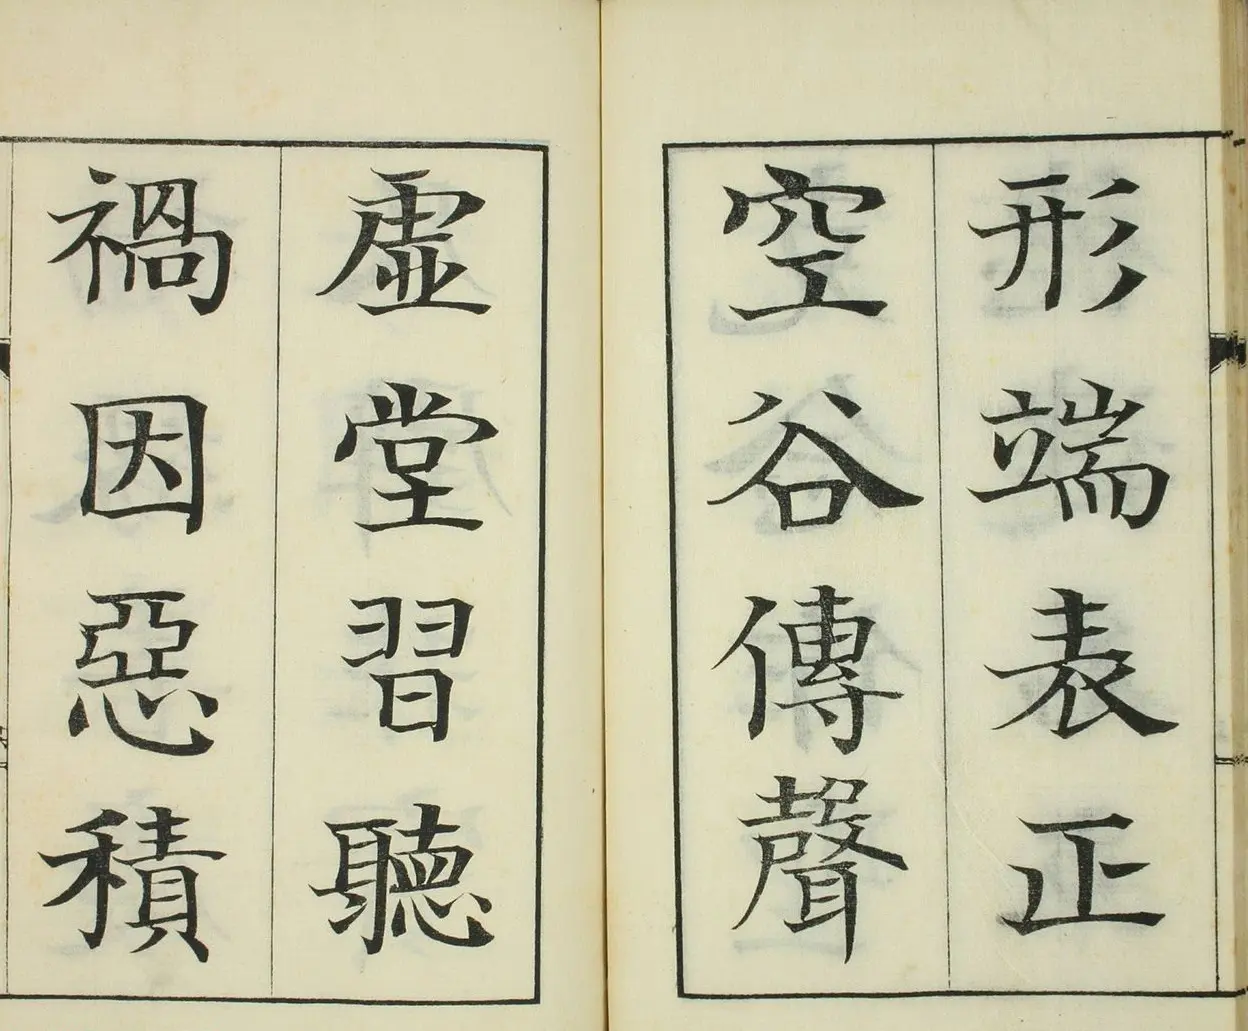 形端表正
空谷傳聲
虛堂習聽
禍因惡積